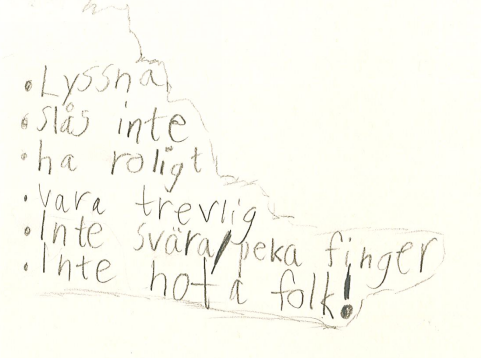 • Lyssna
• slås inte
• ha roligt
• vara trevlig
• Inte svära/peka finger
• Inte hota folk!